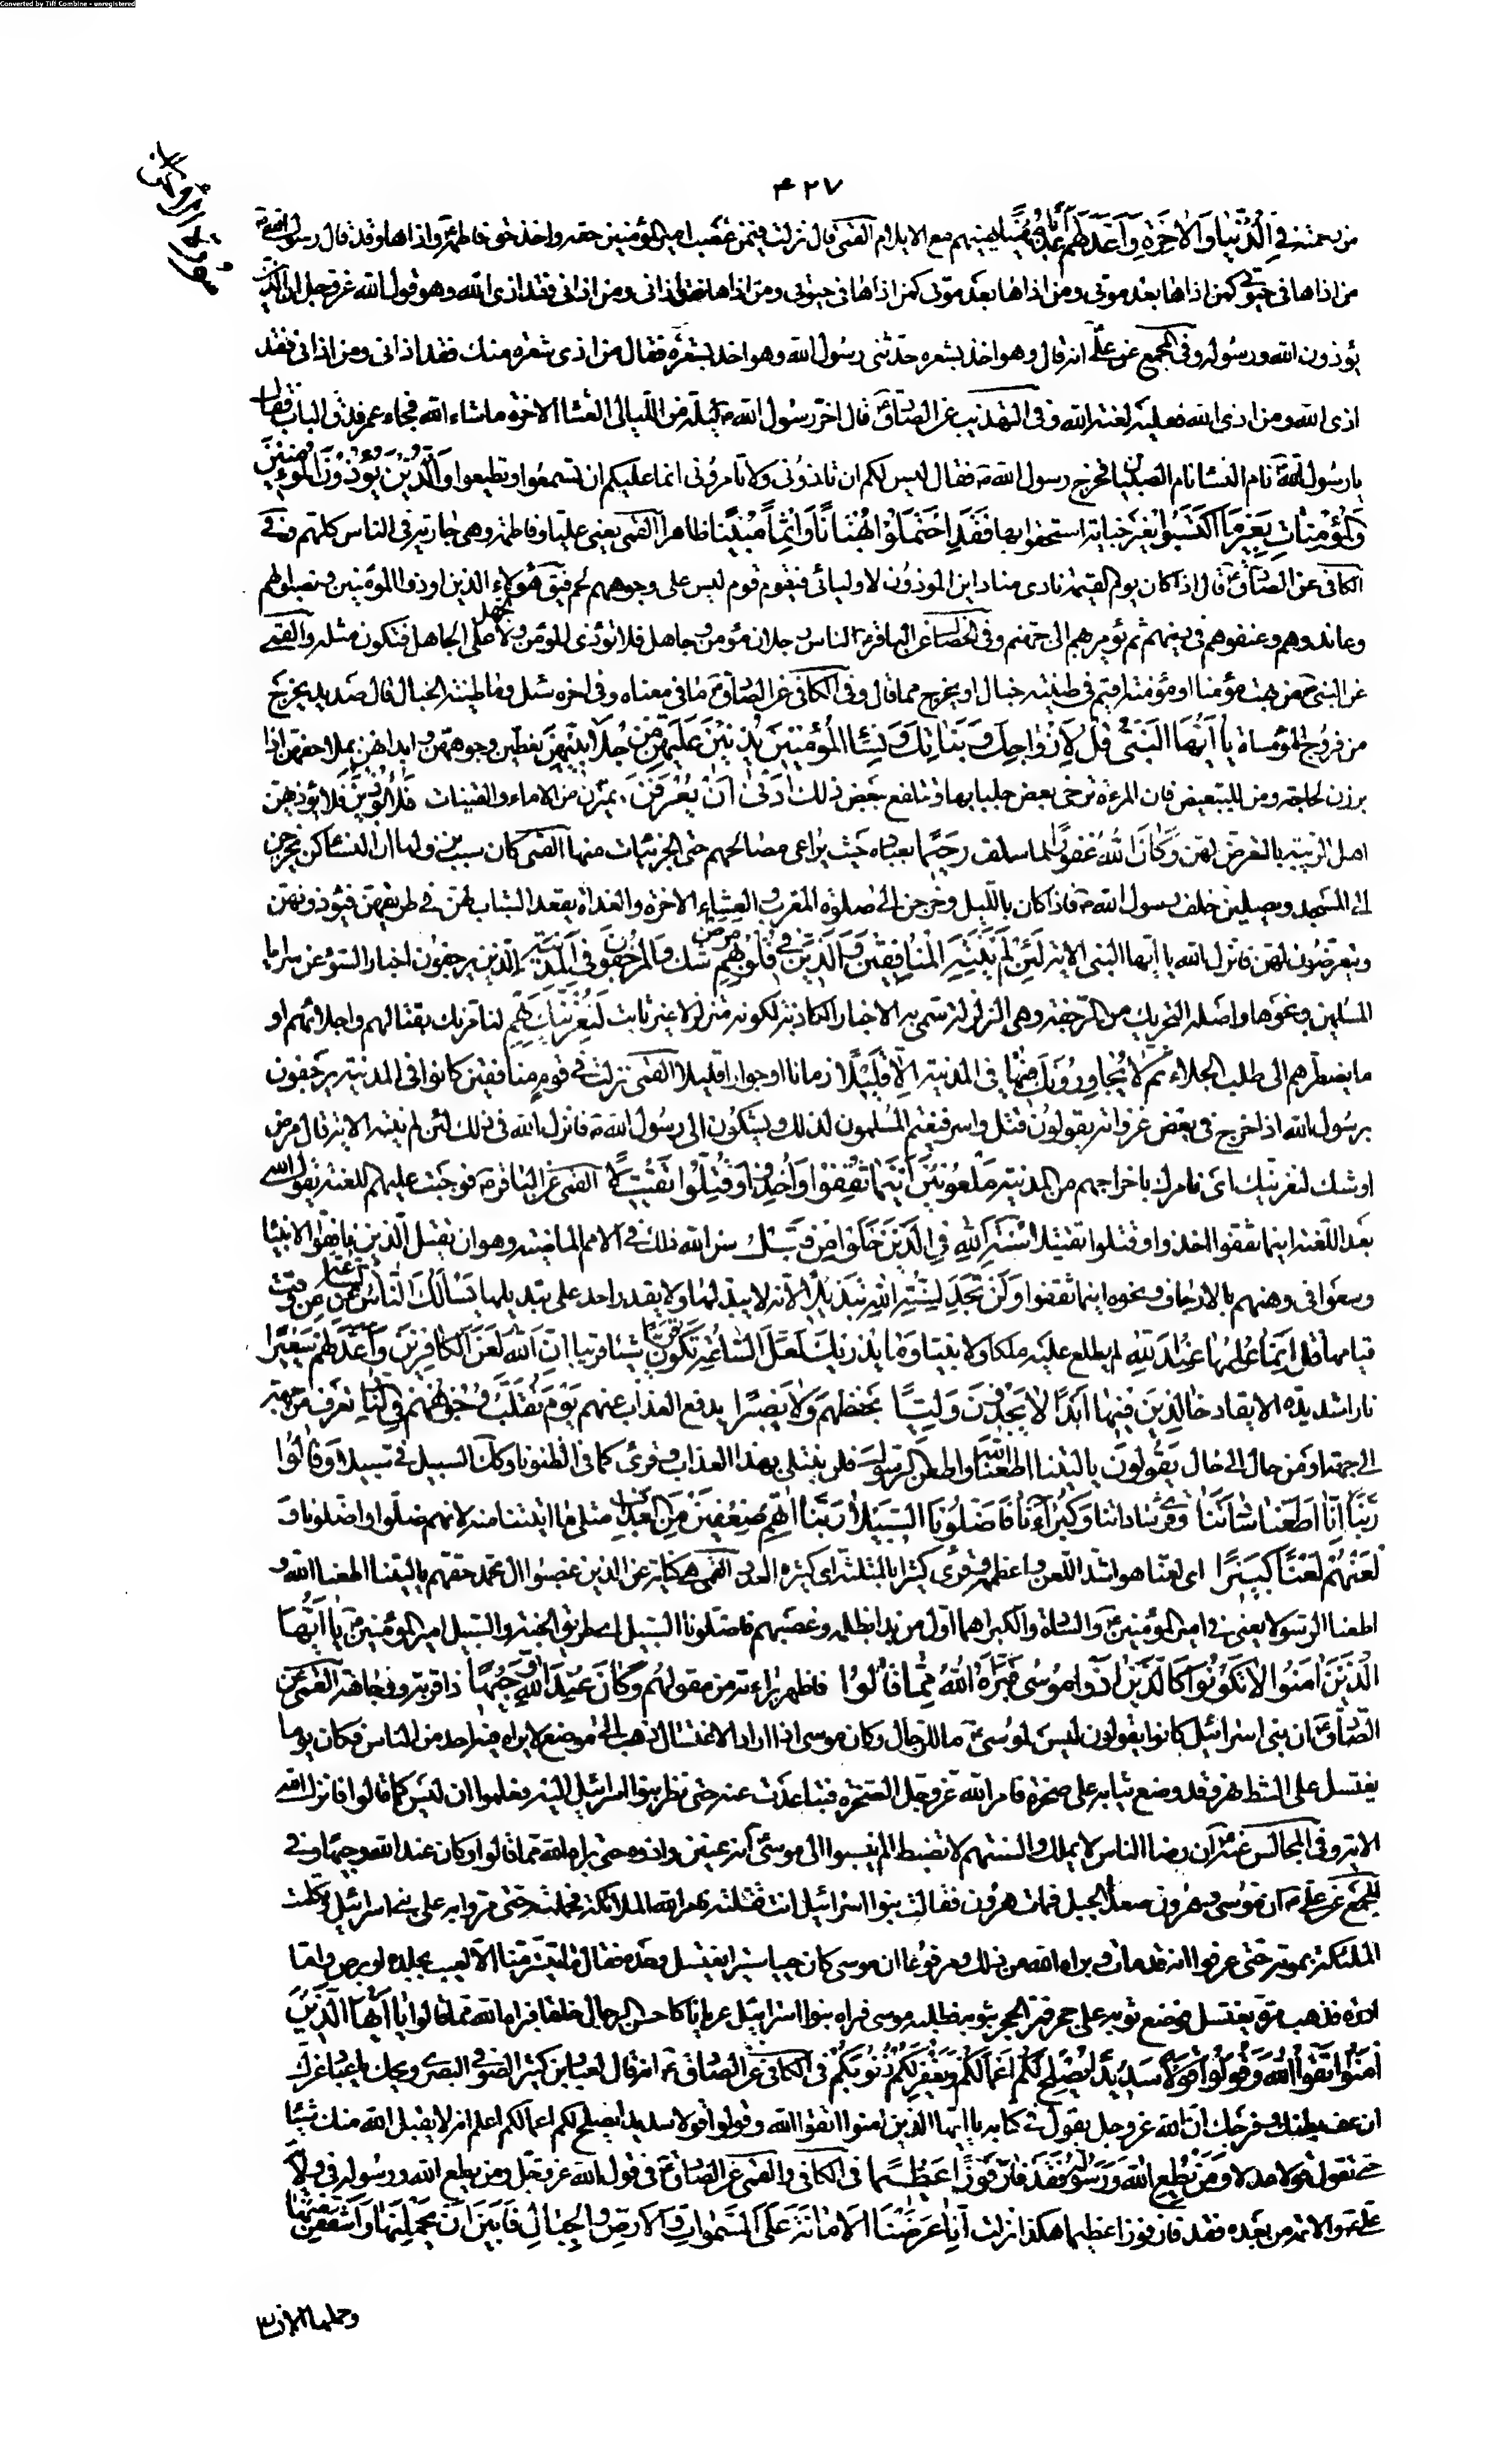 Converted by Tiff Combine - unregistered
۴۲۷
من رحمته في الدنيا والآخرة وأعد لهم عذابا مهينا يهينهم مع الايلام القمي قال نزلت فيمن غصب امير المؤمنين حقه واخذ حق فاطمة واذاها وقد قال رسول الله ص
من اذاها في حيوتي كمن اذاها بعد موتي ومن اذاها بعد موتي كمن اذاها في حيوتي ومن اذاها فقد اذاني ومن اذاني فقد اذى الله وهو قول الله عز وجل ان الذين
يؤذون الله ورسوله وفي المجمع عن علي انه قال وهو اخذ بشعره حدثني رسول الله وهو اخذ بشعره فقال من اذى شعره منك فقد اذاني ومن اذاني فقد
اذى الله ومن اذى الله فعليه لعنة الله وفي التهذيب عن الصادق قال اخر رسول الله ص ليلة من الليالي العشاء الاخرة ما شاء الله فجاء عمر فدق الباب فقال
يا رسول الله نام النساء نام الصبيان فخرج رسول الله ص فقال ليس لكم ان تؤذوني ولا تامروني انما عليكم ان تسمعوا وتطيعوا والذين يؤذون المؤمنين
والمؤمنات بغير ما اكتسبوا بغير جناية استحقوا بها فقد احتملوا بهتانا واثما مبينا ظاهرا القمي يعني عليا وفاطمة وهي جارية في الناس كلهم وفي
الكافي عن الصادق قال اذا كان يوم القيمة نادى مناد اين الموذون لاوليائي فيقوم قوم ليس على وجوههم لحم فيق هؤلاء الذين اوذوا المؤمنين ونصبوا لهم
وعاندوهم وعنفوهم في دينهم ثم يؤمر بهم الى جهنم وفي الخصال عن الباقر الناس رجلان مؤمن وجاهل فلا تؤذي المؤمن ولا تجهل على الجاهل فتكون مثله والقمي
عن النبي ص من بهت مؤمنا او مؤمنة اقيم في طينة خبال او يخرج مما قال وفي الكافي عن الصادق ما في معناه وفي اخره سئل وما طينة الخبال قال صديد يخرج
من فروج المؤمسات يا ايها النبي قل لازواجك وبناتك ونساء المؤمنين يدنين عليهن من جلابيبهن يغطين وجوههن وابدانهن بملاحفهن اذا
برزن لحاجة ومن للتبعيض فان المرءة ترخي بعض جلبابها وتتلفع ببعض ذلك ادنى ان يعرفن يميزن من الاماء والقينات فلا يؤذين فلا يؤذيهن
اهل الريبة بالتعرض لهن وكان الله غفورا لما سلف رحيما بعباده حيث يراعي مصالحهم حتى الجزئيات منها القمي كان سبب نزولها ان النساء كن يخرجن
الى المسجد ويصلين خلف رسول الله ص فاذا كان بالليل وخرجن الى صلوة المغرب والعشاء الاخرة والغداة يقعد الشباب لهن في طريقهن فيؤذونهن
ويتعرضون لهن فانزل الله يا ايها النبي الاية لئن لم ينته المنافقون والذين في قلوبهم مرض شك والمرجفون في المدينة الذين يرجفون اخبار السوء عن سرايا
المسلمين ونحوها واصله التحريك من الرجفة وهي الزلزلة سمي به الاخبار الكاذبة لكونه متزلزلا غير ثابت لنغرينك بهم لنامرنك بقتالهم واجلائهم او
ما يضطرهم الى طلب الجلاء ثم لا يجاورونك فيها في المدينة الا قليلا زمانا او جوارا قليلا القمي نزلت في قوم منافقين كانوا في المدينة يرجفون
برسول الله اذا خرج في بعض غزواته يقولون قتل واسر فيغتم المسلمون لذلك ويشكون الى رسول الله ص فانزل الله في ذلك لئن لم ينته الاية قال مرض
اي شك لنغرينك اي نامرك باخراجهم من المدينة ملعونين اينما ثقفوا واخذوا وقتلوا تقتيلا القمي عن الباقر ع فوجبت عليهم اللعنة يقول الله
بعد اللعنة اينما ثقفوا اخذوا وقتلوا تقتيلا سنة الله في الذين خلوا من قبل سن الله ذلك في الامم الماضية وهو ان يقتل الذين نافقوا الانبياء
وسعوا في وهنهم بالارجاف ونحوه اينما ثقفوا ولن تجد لسنة الله تبديلا لانه لا يبدلها ولا يقدر احد على تبديلها يسألك الناس عن الساعة عن وقت
قيامها قل انما علمها عند الله لم يطلع عليه ملكا ولا نبيا وما يدريك لعل الساعة تكون قريبا شيئا قريبا ان الله لعن الكافرين واعد لهم سعيرا
نارا شديدة الايقاد خالدين فيها ابدا لا يجدون وليا يحفظهم ولا نصيرا يدفع العذاب عنهم يوم تقلب وجوههم في النار تصرف من جهة
الى جهة او من حال الى حال يقولون يا ليتنا اطعنا الله واطعنا الرسولا فلن نبتلي بهذا العذاب وقرئ كما في الظنونا وكذا السبيل في سبيلا وقالوا
ربنا انا اطعنا سادتنا وقرئ ساداتنا وكبراءنا فاضلونا السبيلا ربنا اتهم ضعفين من العذاب مثلي ما اتيتنا منه لانهم ضلوا واضلونا و
العنهم لعنا كبيرا اي لعنا هو اشد اللعن واعظمه وقرئ كثيرا بالمثلثة اي كثير العدد القمي هي كناية عن الذين غصبوا ال محمد حقهم يا ليتنا اطعنا الله و
اطعنا الرسولا يعني في امير المؤمنين والسادة والكبراء هما اول من بدا بظلمهم وغصبهم فاضلونا السبيل اي طريق الجنة والسبيل امير المؤمنين يا ايها
الذين امنوا لا تكونوا كالذين اذوا موسى فبراه الله مما قالوا فاظهر براءته من مقولهم وكان عند الله وجيها ذا قربة ووجاهة القمي عن
الصادق ان بني اسرائيل كانوا يقولون ليس لموسى ما للرجال وكان موسى اذا اراد الاغتسال ذهب الى موضع لا يراه فيه احد من الناس فكان يوما
يغتسل على شط نهر وقد وضع ثيابه على صخرة فامر الله عز وجل الصخرة فتباعدت عنه حتى نظر بنو اسرائيل اليه فعلموا ان ليس كما قالوا فانزل الله
الاية وفي المجالس عنه ان رضا الناس لا يملك والسنتهم لا تضبط الم ينسبوا الى موسى انه عنين واذوه حتى براه الله مما قالوا وكان عند الله وجيها وفي
المجمع عن علي ان موسى وهرون صعدا الجبل فمات هرون فقالت بنو اسرائيل انت قتلته فامر الله الملائكة فحملته حتى مروا به على بني اسرائيل وتكلمت
الملئكة بموته حتى عرفوا انه قد مات وبراه الله من ذلك ومرفوعا ان موسى كان حييا ستيرا يغتسل وحده فقال ما يتستر منا الا لعيب بجلده اما برص واما
ادرة فذهب مرة يغتسل فوضع ثوبه على حجر فمر الحجر بثوبه فطلبه موسى فراه بنو اسرائيل عريانا كاحسن الرجال خلقا فبراه الله مما قالوا يا ايها الذين
امنوا اتقوا الله وقولوا قولا سديدا يصلح لكم اعمالكم ويغفر لكم ذنوبكم في الكافي عن الصادق ع انه قال لعباد بن كثير الصوفي البصري ويحك يا عباد غرك
ان عف بطنك وفرجك ان الله عز وجل يقول في كتابه يا ايها الذين امنوا اتقوا الله وقولوا قولا سديدا يصلح لكم اعمالكم اعلم انه لا يقبل الله منك شيئا
حتى تقول قولا عدلا ومن يطع الله ورسوله فقد فاز فوزا عظيما في الكافي والقمي عن الصادق ع في قول الله عز وجل ومن يطع الله ورسوله في ولاية
علي والائمة من بعده فقد فاز فوزا عظيما هكذا نزلت انا عرضنا الامانة على السموات والارض والجبال فابين ان يحملنها واشفقن منها
وحملها الانسان